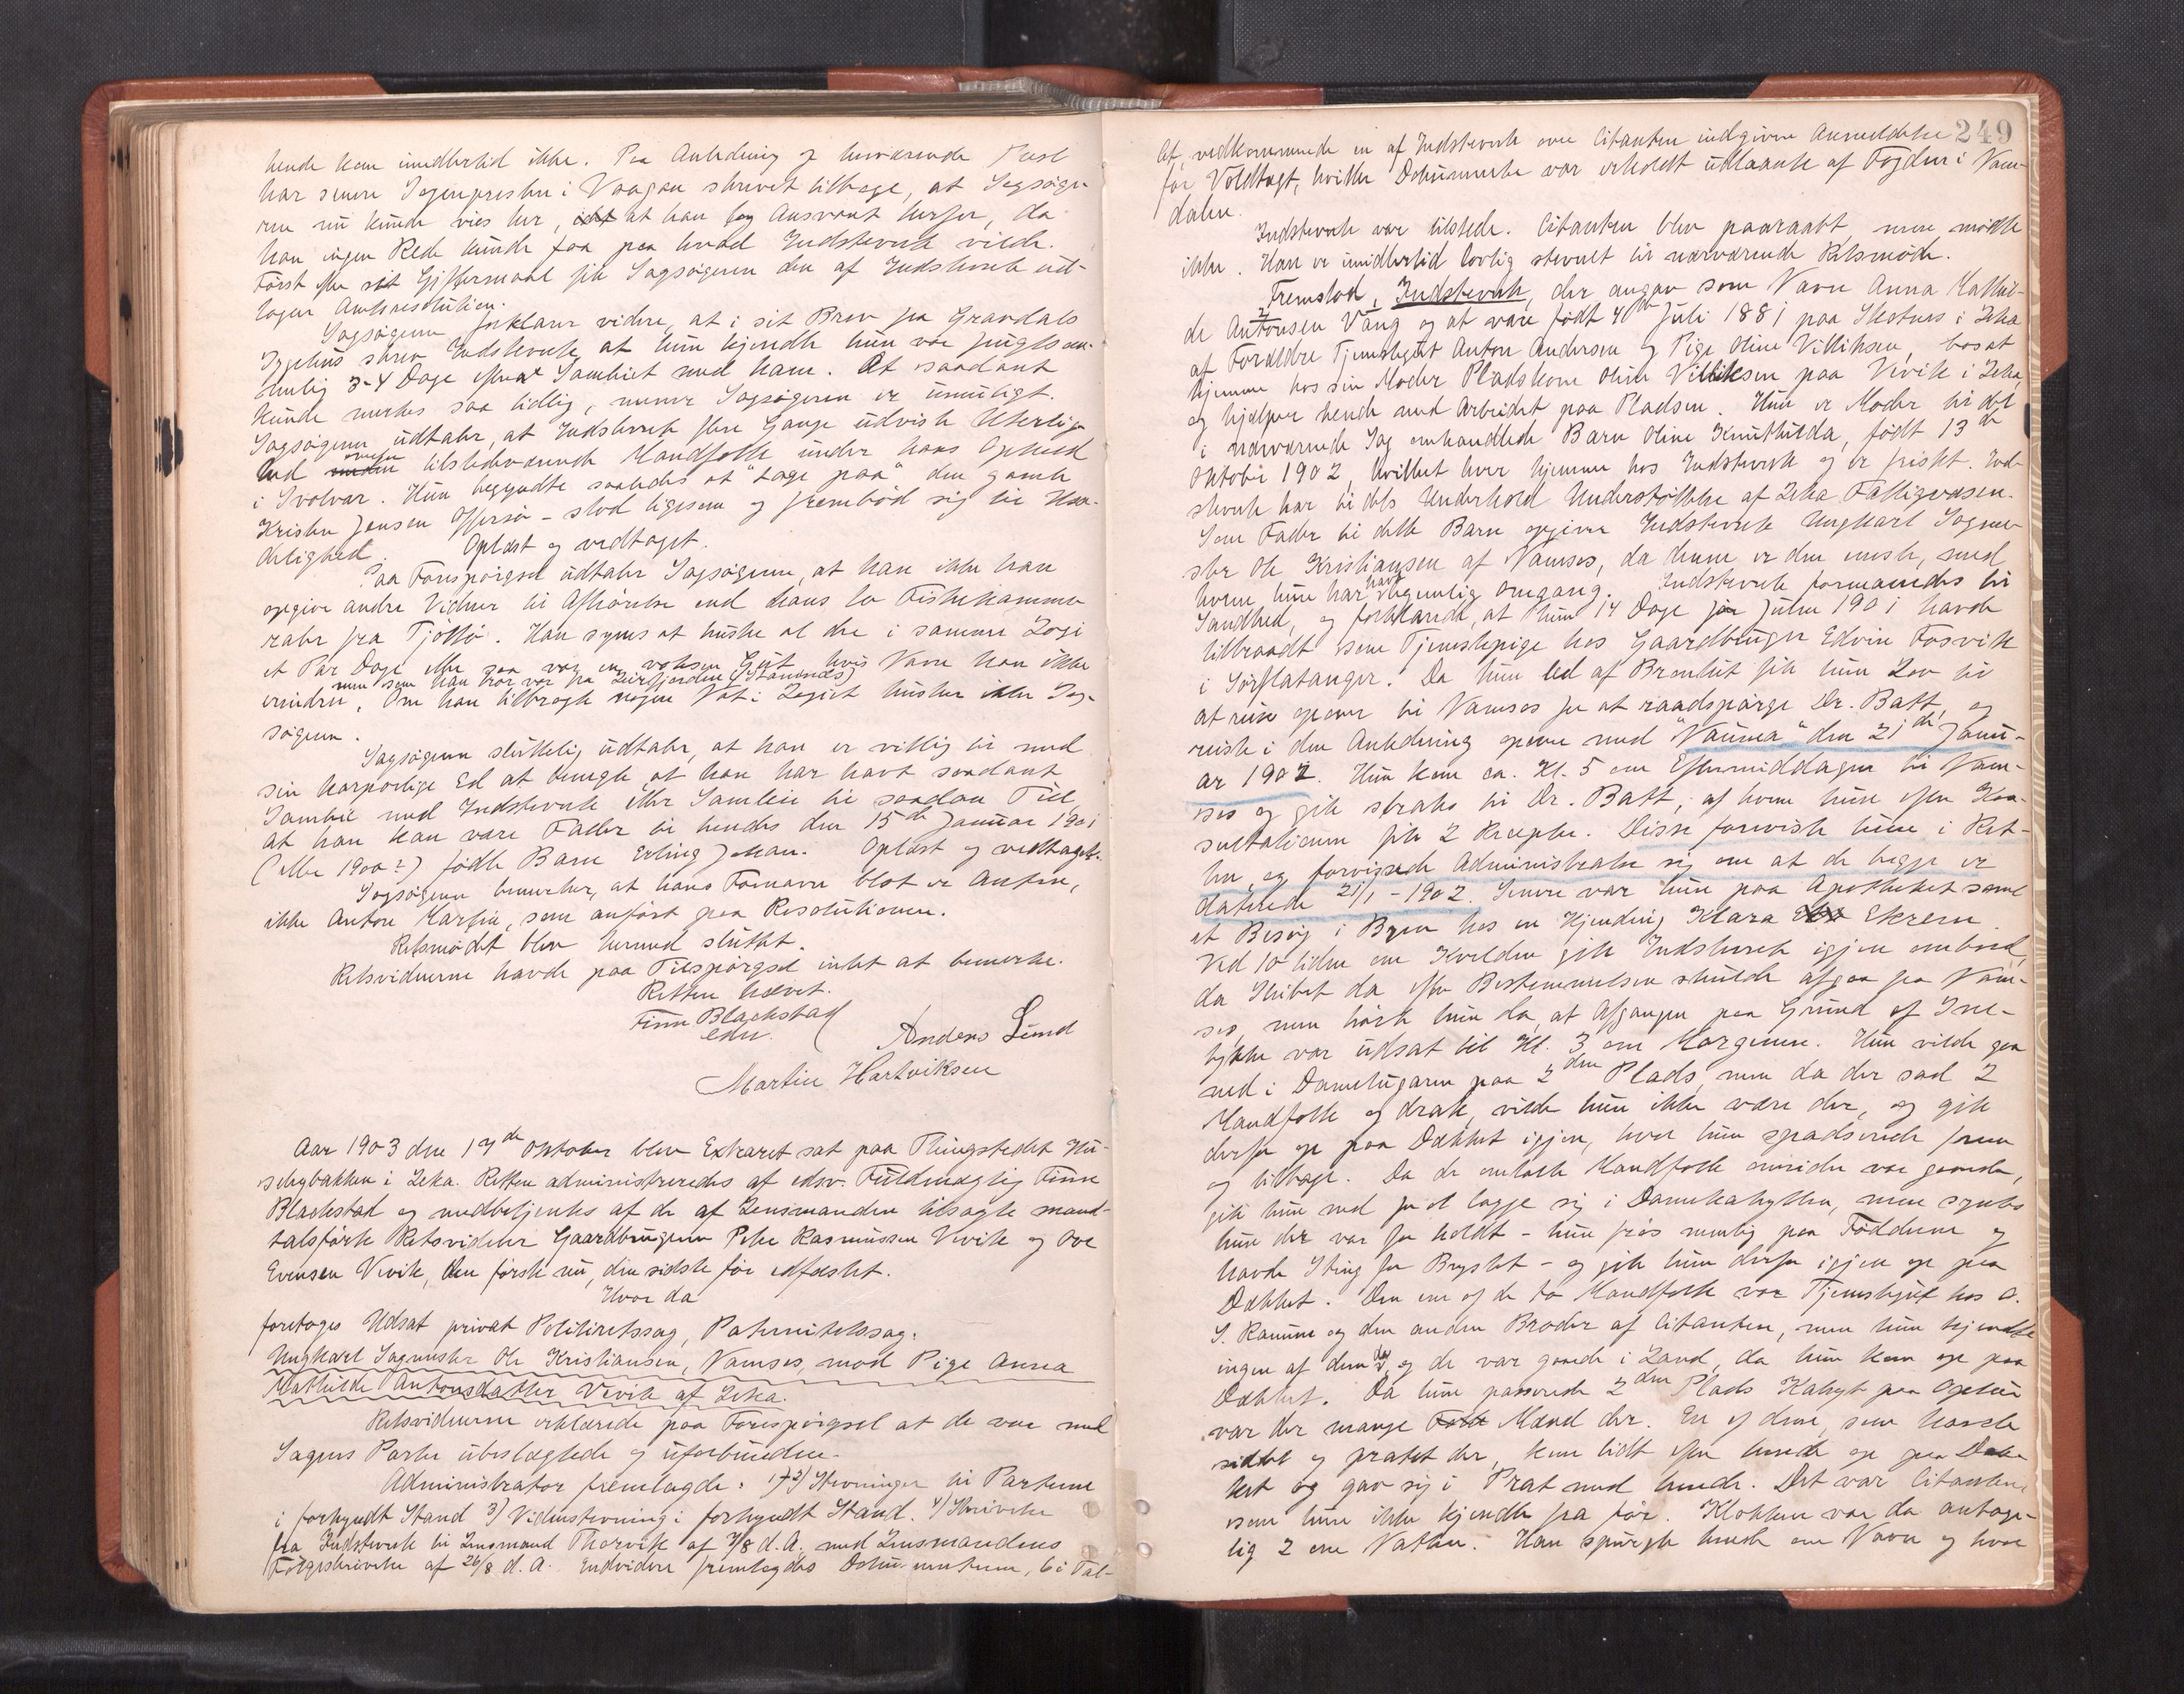 hende kom imidlertid ikke. Paa Anledning af herværende Præst
har senere Sogenpresten i Vaagan skrevet tilbage, at Sagsøge-
ren nu kunde vies her, at han tog Ansvaret herfor, da
han ingen Rede kunde faa paa hvad Indstevnte vilde.
Først efter sit Giftermaal fik Sagsøgeren den af Indstevnte ud-
tagen Amtsresolution.
Sagsøgeren forklarer videre, at i sit Brev fra Gravdals
Sygehus skrev Indstevnte, at hun kjendte hun var frugtsom-
melig 3-4 Dage efter Samleiet med ham. At saadant
kunde merkes saa tidlig, mener Sagsøgeren er umuligt.
Sagsøgeren udtaler, at Indstevnte flere Gange udviste Uterlig-
hed overfor tilstedeværende Mandfolk under hans Ophold
i Svolvær. Hun begyndte saaledes at "tage paa" den gamle
Kristen Jensen Offersø - stod ligesom og frembød sig til Uan-
stendighed. Oplæst og vedtaget.
Paa Forespørgsel udtaler Sagsøgeren, at han ikke kan
opgive andre Vidner til Afhørelse end hans to Fiskekamme-
rater fra Tjøttø. Han synes at huske at der i samme Logi
et Par Dage eller saa var en voksen Gut, hvis Navn han ikke
men som han tror var fra Leirfjorden (Stamnes)
erindrer. Om han tilbragte nogen Nat i Logiet husker ikke Sag-
søgeren.
Sagsøgeren sluttelig udtaler, at han er villig til med
sin korporlige Ed at benegte at han har havt saadant
Samleie med Indstevnte eller Samleie til saadan Tid,
at han kan være Fader til hendes den 15de Januar 1901
(eller 1900?) fødte Barn Erling Johan. Oplæst og vedtaget.
Sagsøgeren bemerker, at hans Fornavn blot er Anton,
ikke Anton Martin, som anført paa Resolutionen.
Retsmødet blev hermed sluttet.
Retsvidnerne havde paa Tilspørgsel intet at bemerke.
Retten hævet.
Finn Blackstad
edsv.
Anders Lund
Martin Hartviksen
Aar 1903 den 17de Oktober blev Extraret sat paa Thingstedet Hu-
sebybakken i Leka. Retten administreredes af edsv. Fuldmægtig Finn
Blackstad og medbetjentes af de af Lensmanden tilsagte mand-
talsførte Retsvidner Gaardbrugerne Peter Rasmussen Vivik og Ove
Evensen Vivik, den første nu, den sidste før edfæstet.
Hvor da
foretoges Udsat privat Politiretssag, Paternitetssag:
Ungkarl Sagmester Ole Kristiansen, Namsos, mod Pige Anna
Mathilde Antonsdatter Vivik af Leka.
Retsvidnerne erklærede paa Forespørgsel at de var med
Sagens Parter ubeslægtede og uforbundne.
Administrator fremlagde: 1)+2) Stevninger til Parterne
i forkyndt Stand 3) Vidnestevning i forkyndt Stand. 4) Skrivelse
fra Indstevnte til Lensmand Thorvik af 7/8 d. A. med Lensmandens
Følgeskrivelse af 26/8 d. A. Endvidere fremlagdes Dokumenterne, 6 i Tal-
249
let, vedkommende en af Indstevnte over Citanten indgiven Anmeldelse
for Voldtægt, hvilke Dokumenter var erholdt udlaante af Fogden i Nam-
dalen.
Indstevnte var tilstede. Citanten blev paaraabt, men mødte
ikke. Han er imidlertid lovlig stevnet til nærværende Retsmøde.
Fremstod, Indstevnte, der angav som Navn Anna Mathil-
de Antonsen Vang og at være født 4de Juli 1881 paa Skotnes i Leka
af Forældre Tjenestegut Anton Andersen og Pige Oline Villiksen, bosat
hjemme hos sin Moder Pladskone Oline Villiksen paa Vivik i Leka,
og hjælper hende med Arbeidet paa Pladsen. Hun er Moder til det
i nærværende Sag omhandlede Barn Oline Knuthilda, født 13de
Oktober 1902, hvilket lever hjemme hos Indstevnte og er friskt. Ind-
stevnte har til dets Underhold Understøttelse af Leka Fattigvæsen.
Som Fader til dette Barn opgiver Indstevnte Ungkarl Sagme-
ster Ole Kristiansen af Namsos, da denne er den eneste, med
hvem hun har havt legemlig Omgang. Indstevnte formanedes til
Sandhed, og forklarede, at hun 14 Dage før Julen 1901 havde
tiltraadt som Tjenestepige hos Gaardbruger Edvin Fosvik
i Sørflatanger. Da hun led af Bronkit fik hun Lov til
at reise opover til Namsos for at raadspørge Dr. Batt, og
reiste i den Anledning opover med "Nauma" den 21de Janu-
ar 1902. Hun kom ca. Kl. 5 om Eftermiddagen til Nam-
sos og gik straks til Dr. Batt, af hvem hun efter Kon-
sultationen fik 2 Recepter. Disse foreviste hun i Ret-
ten, og forvissede Administrator sig om at de begge er
daterede 21/1 - 1902. Senere var hun paa Apotheket samt
et Besøg i Byen hos en Kjending Klara Ekrem.
Ved 10 tiden om Kvelden gik Indstevnte igjen ombord,
da Skibet da efter Bestemmelsen skulde afgaa fra Nam-
sos, men hørte hun da, at Afgangen paa Grund af Sne-
tykke var udsat til Kl. 3 om Morgenen. Hun vilde gaa
ned i Damelugaren paa 2den Plads, men da der sad 2
Mandfolk og drak, vilde hun ikke være der, og gik
derfor op paa Dækket igjen, hvor hun spadserede frem
og tilbage. Da de omtalte Mandfolk omsider var gaaede,
gik hun ned for at lægge sig i Damekahytten, men syntes
hun der var for koldt - hun frøs nemlig paa Fødderne og
havde Sting for Brystet - og gik hun derfor igjen op paa
Dækket. Den ene af de to Mandfolk var Tjenestegut hos O.
S. Ranum og den anden Broder af Citanten, men hun kjendte
ingen af dem da, og de var gaaede i Land, da hun kom op paa
Dækket. Da hun passerede 2den Plads Kahyt paa Opturen
var der mange Mænd der. En af dem, som havde
siddet og pratet der, kom lidt efter hende op paa Dæk-
ket og gav sig i Prat med hende. Det var Citanten,
som hun ikke kjendte fra før. Klokken var da antage-
lig 2 om Natten. Han spurgte hende om Navn og hvor